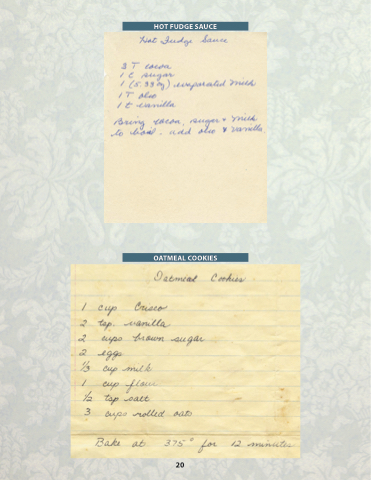 HOT FUDGE SAUCE
Hot Fudge Sauce
3 T cocoa
1 C sugar
1 (5.33 oz) evaporated milk
1 T oleo
1 t vanilla
Bring cocoa, sugar + milk
to boil. add oleo & vanilla
OATMEAL COOKIES
Oatmeal Cookies
1 cup Crisco
2 tsp. vanilla
2 cups brown sugar
2 eggs
1/3 cup milk
1 cup flour
1/2 tsp salt
3 cups rolled oats
Bake at 375° for 12 minutes
20